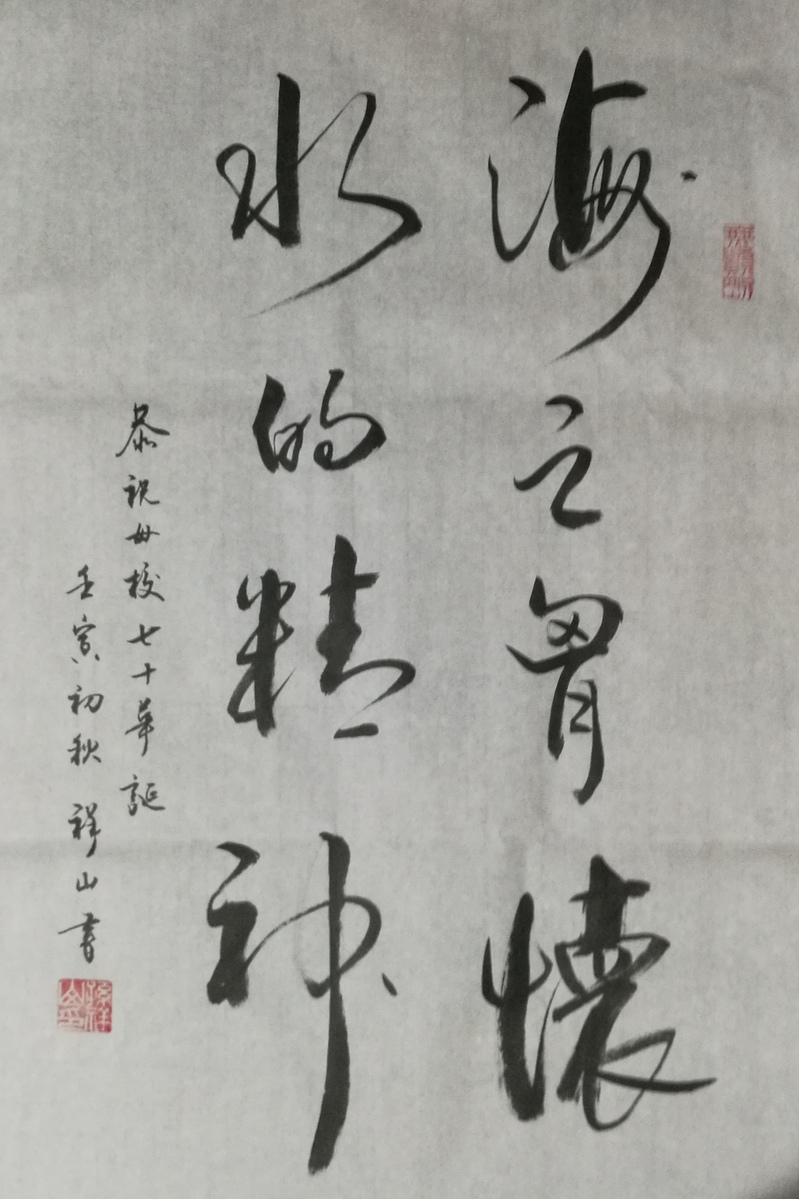 海之胷懷
水的精神
恭祝母校七十華誕
壬寅初秋 祥山書